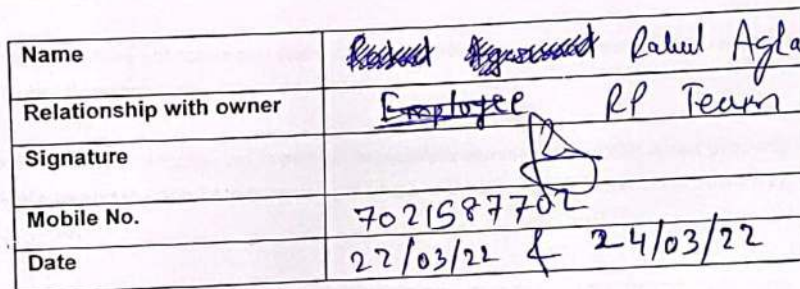 Name Rahul Agla
Relationship with owner Employee RP Team
Signature
Mobile No. 7021587702
Date 22/03/22 & 24/03/22